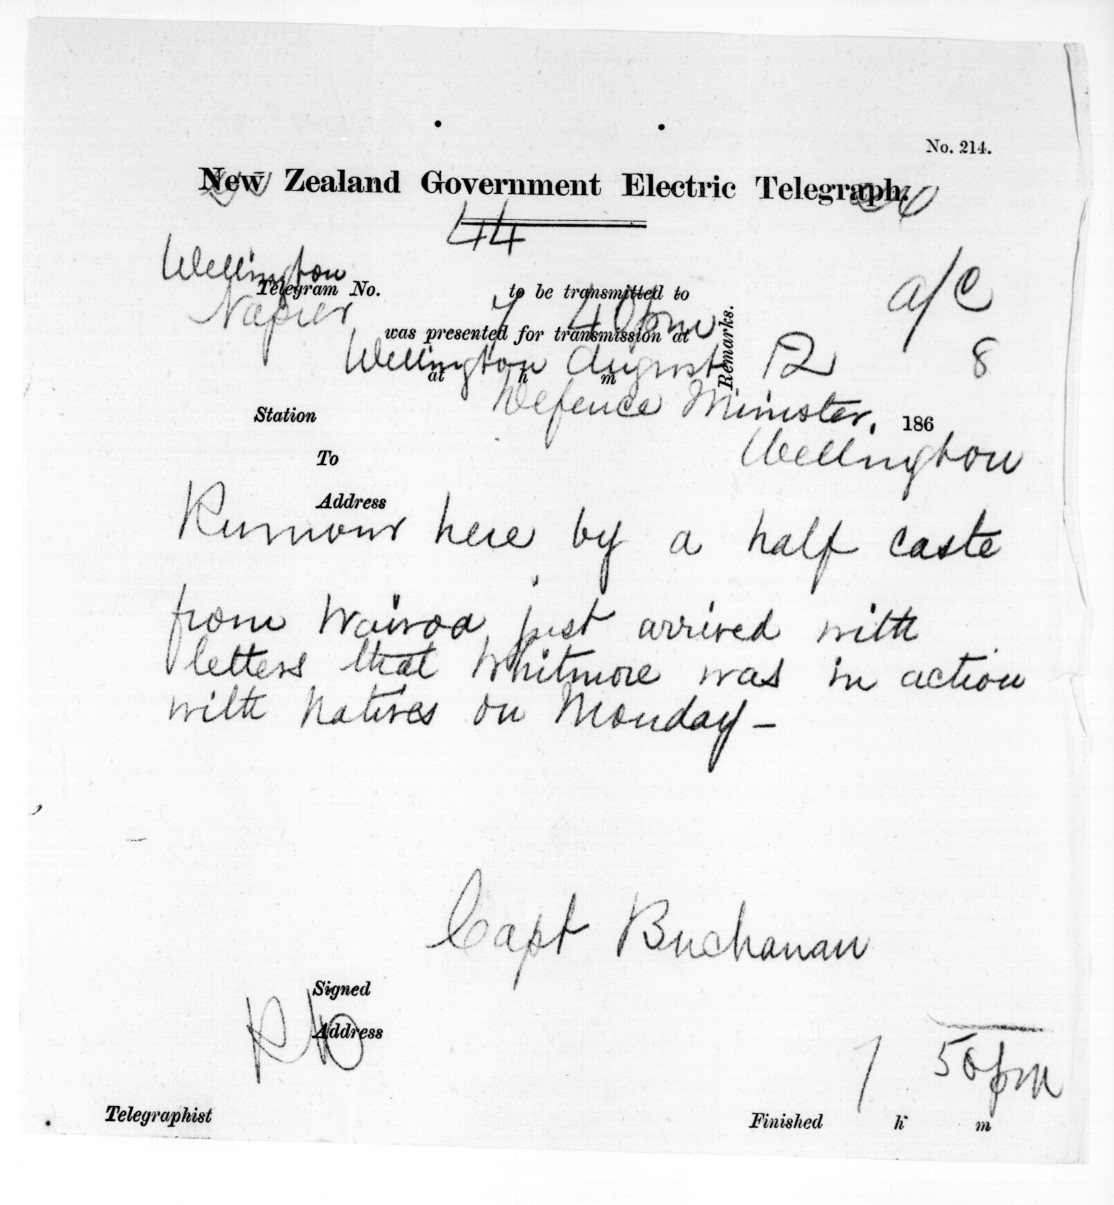 No. 214.
New Zealand Government Electric Telegraph.
44
Wellington
Telegram No. to be transmitted to
Napier 7 40pm a/c
was presented for transmission at
Remarks.
Wellington August 12 8
at h m
Defence Minister,
Station 186
Wellington
To
Address
Rumour here by a half caste
from Wairoa just arrived with
letters that Whitmore was in action
with Natives on Monday –
Capt Buchanan
Signed
Address
7 50pm
Telegraphist Finished h m